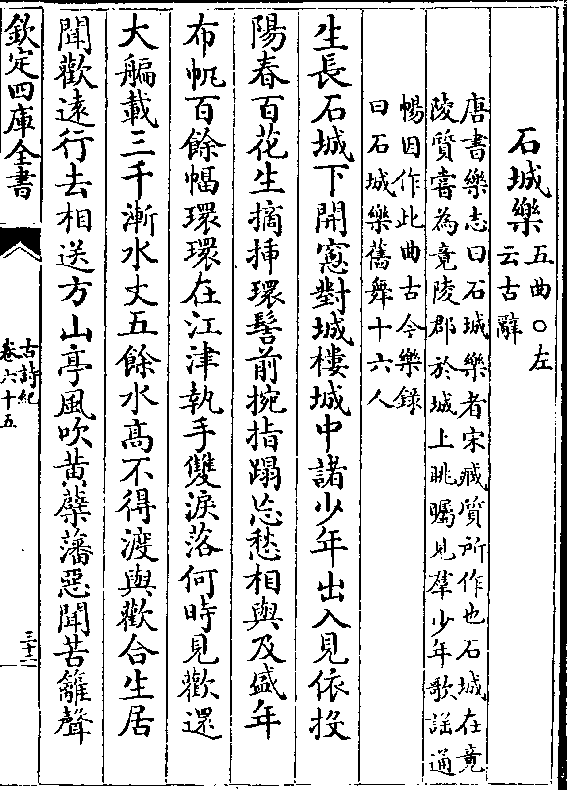 石城樂五曲○左
云古辭
唐書樂志曰石城樂者宋臧質所作也石城在竟
陵質嘗為竟陵郡於城上眺矚見羣少年歌謡通
暢因作此曲古今樂錄
曰石城樂舊舞十六人
生長石城下開窻對城樓城中諸少年出入見依投
陽春百花生摘揷環髻前捥指蹋忘愁相與及盛年
布帆百餘幅環環在江津執手雙淚落何時見歡還
大艑載三千漸水丈五餘水髙不得渡與歡合生居
聞歡逺行去相送方山亭風吹黄蘗藩惡聞苦籬聲
欽定四庫全書
古詩紀
卷六十五
三十二